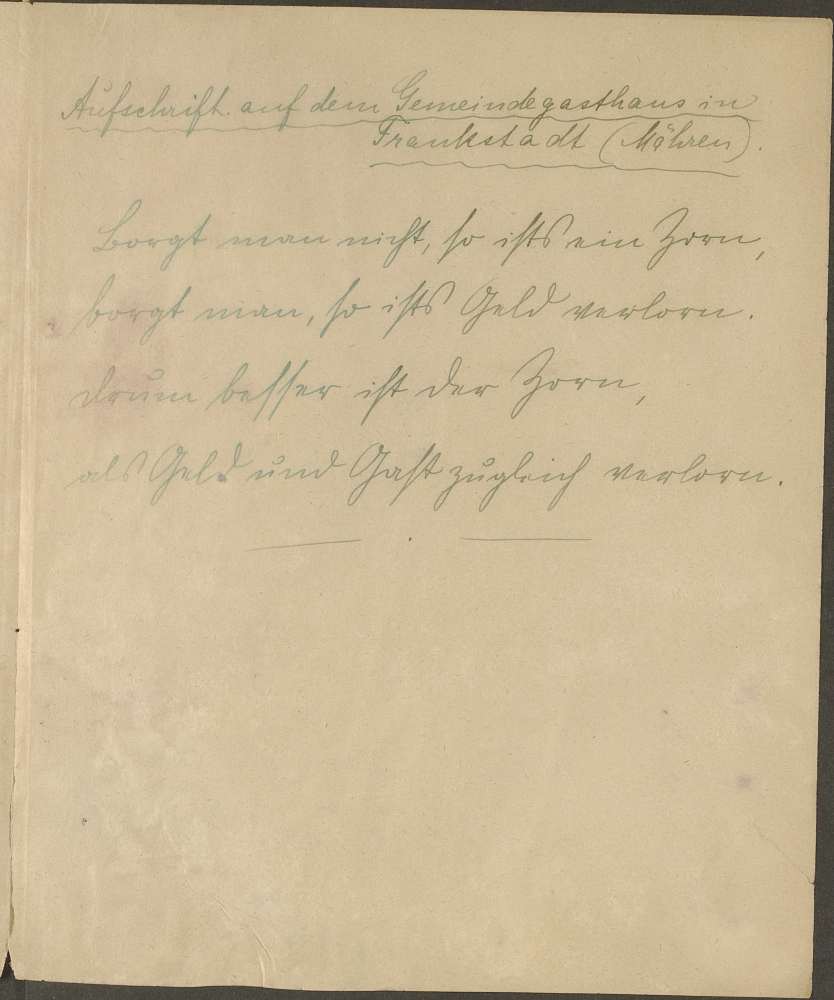 Aufschrift auf dem Gemeindegasthaus in
Frankstadt (Mähren).
Borgt man nicht, so ists ein Zorn,
borgt man, so ists Geld verlorn.
drum besser ist der Zorn,
als Geld und Gast zugleich verlorn.